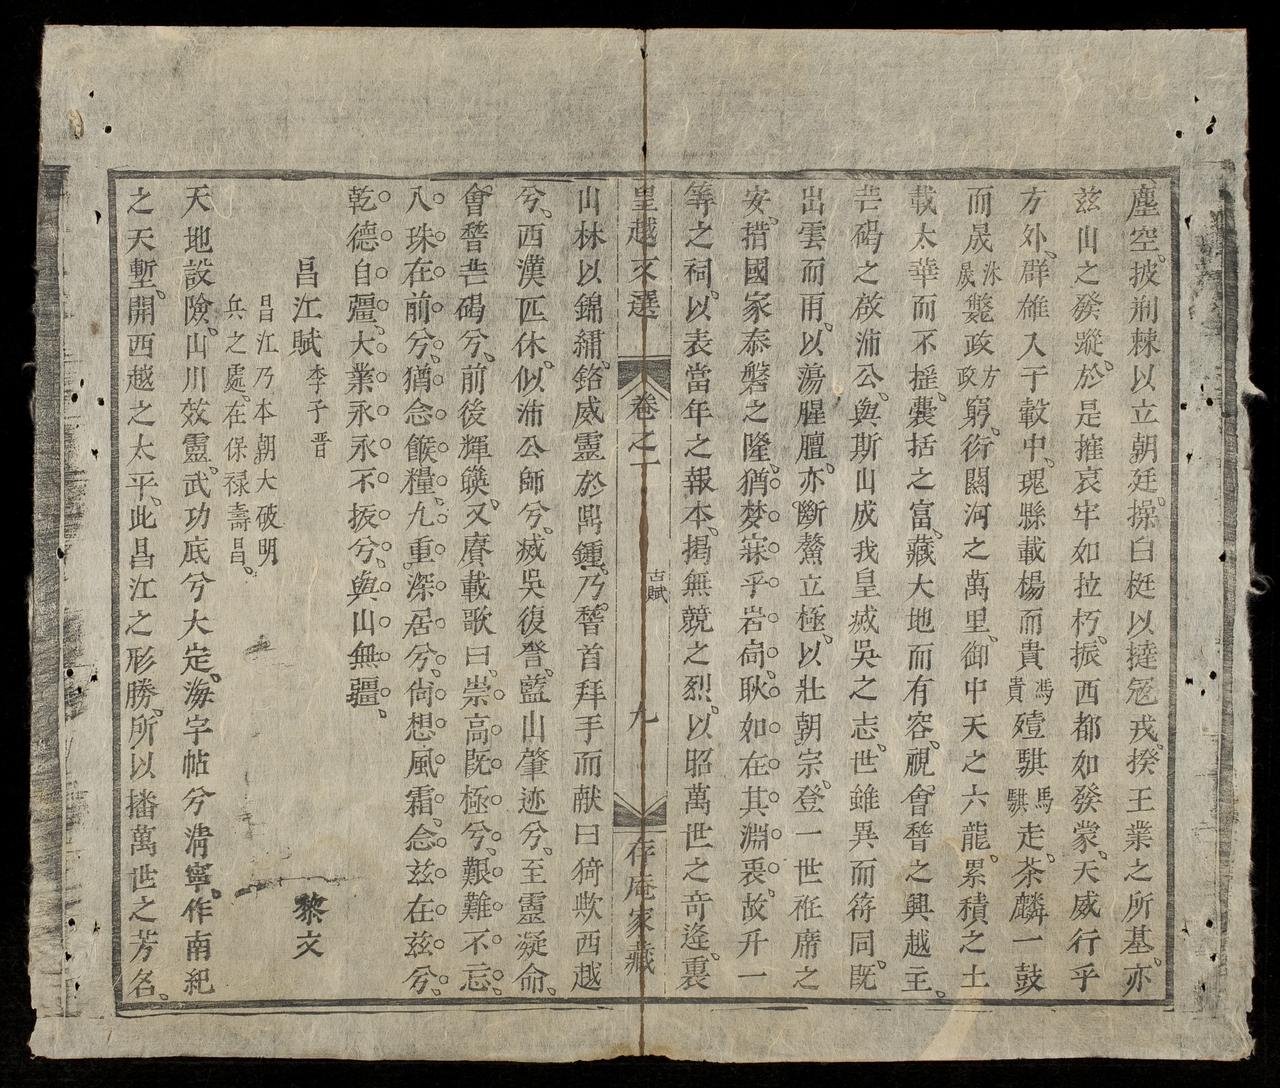 塵空。披荊棘以立朝廷。操白梃以撻冦戎。揆王業之所基。亦
玆山之發蹤。於是摧哀牢如拉朽。振西都如發蒙。天威行乎
方外。群雄入于彀中。瑰縣載楊而貴馮貴殪騏馬騏走。茶麟一鼓
而晟冰晟斃政方政窮。衔關河之萬里。御中天之六龍。累積之土
載太華而不揺。囊括之富。藏大地而有容。視會稽之興越主。
芒碭之啟沛公。與斯山成我皇㓕吳之志。世雖異而符同。旣
出雲而雨。以蕩腥膻。亦斷鰲立極。以壯朝宗。登一世袵席之
安。措國家泰磐之隆。猶梦寐乎岩扃。耿如在其淵衷。故升一
等之祠。以表當年之報本。揭無競之烈。以昭萬世之竒逢。裏
皇越文選 卷之一 古賦 九 存庵家藏
山林以錦繡。銘威靈於鼎鍾。乃稽首拜手而献曰猗欤西越
兮。西漢匹休。似沛公師兮。㓕吳復讐。藍山肇迹兮。至靈凝命。
會稽芒碭兮。前後輝暎。又賡載歌曰。崇高旣極兮。艱難不忘。
八珠在前兮。猶念餱糧。九重深居兮。尙想風霜。念玆在玆兮。
乾德自彊。大業永永不拔兮。與山無疆。
昌江賦 李子晋 黎文
昌江乃本朝大破明
兵之處。在保禄壽昌。
天地設險。山川效靈。武功底兮大定。海宇帖兮淸寧。作南紀
之天塹。開西越之太平。此昌江之形勝。所以播萬世之芳名。